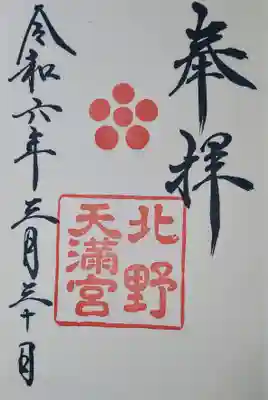 奉拝
北野
天満宮
令和六年三月三十日